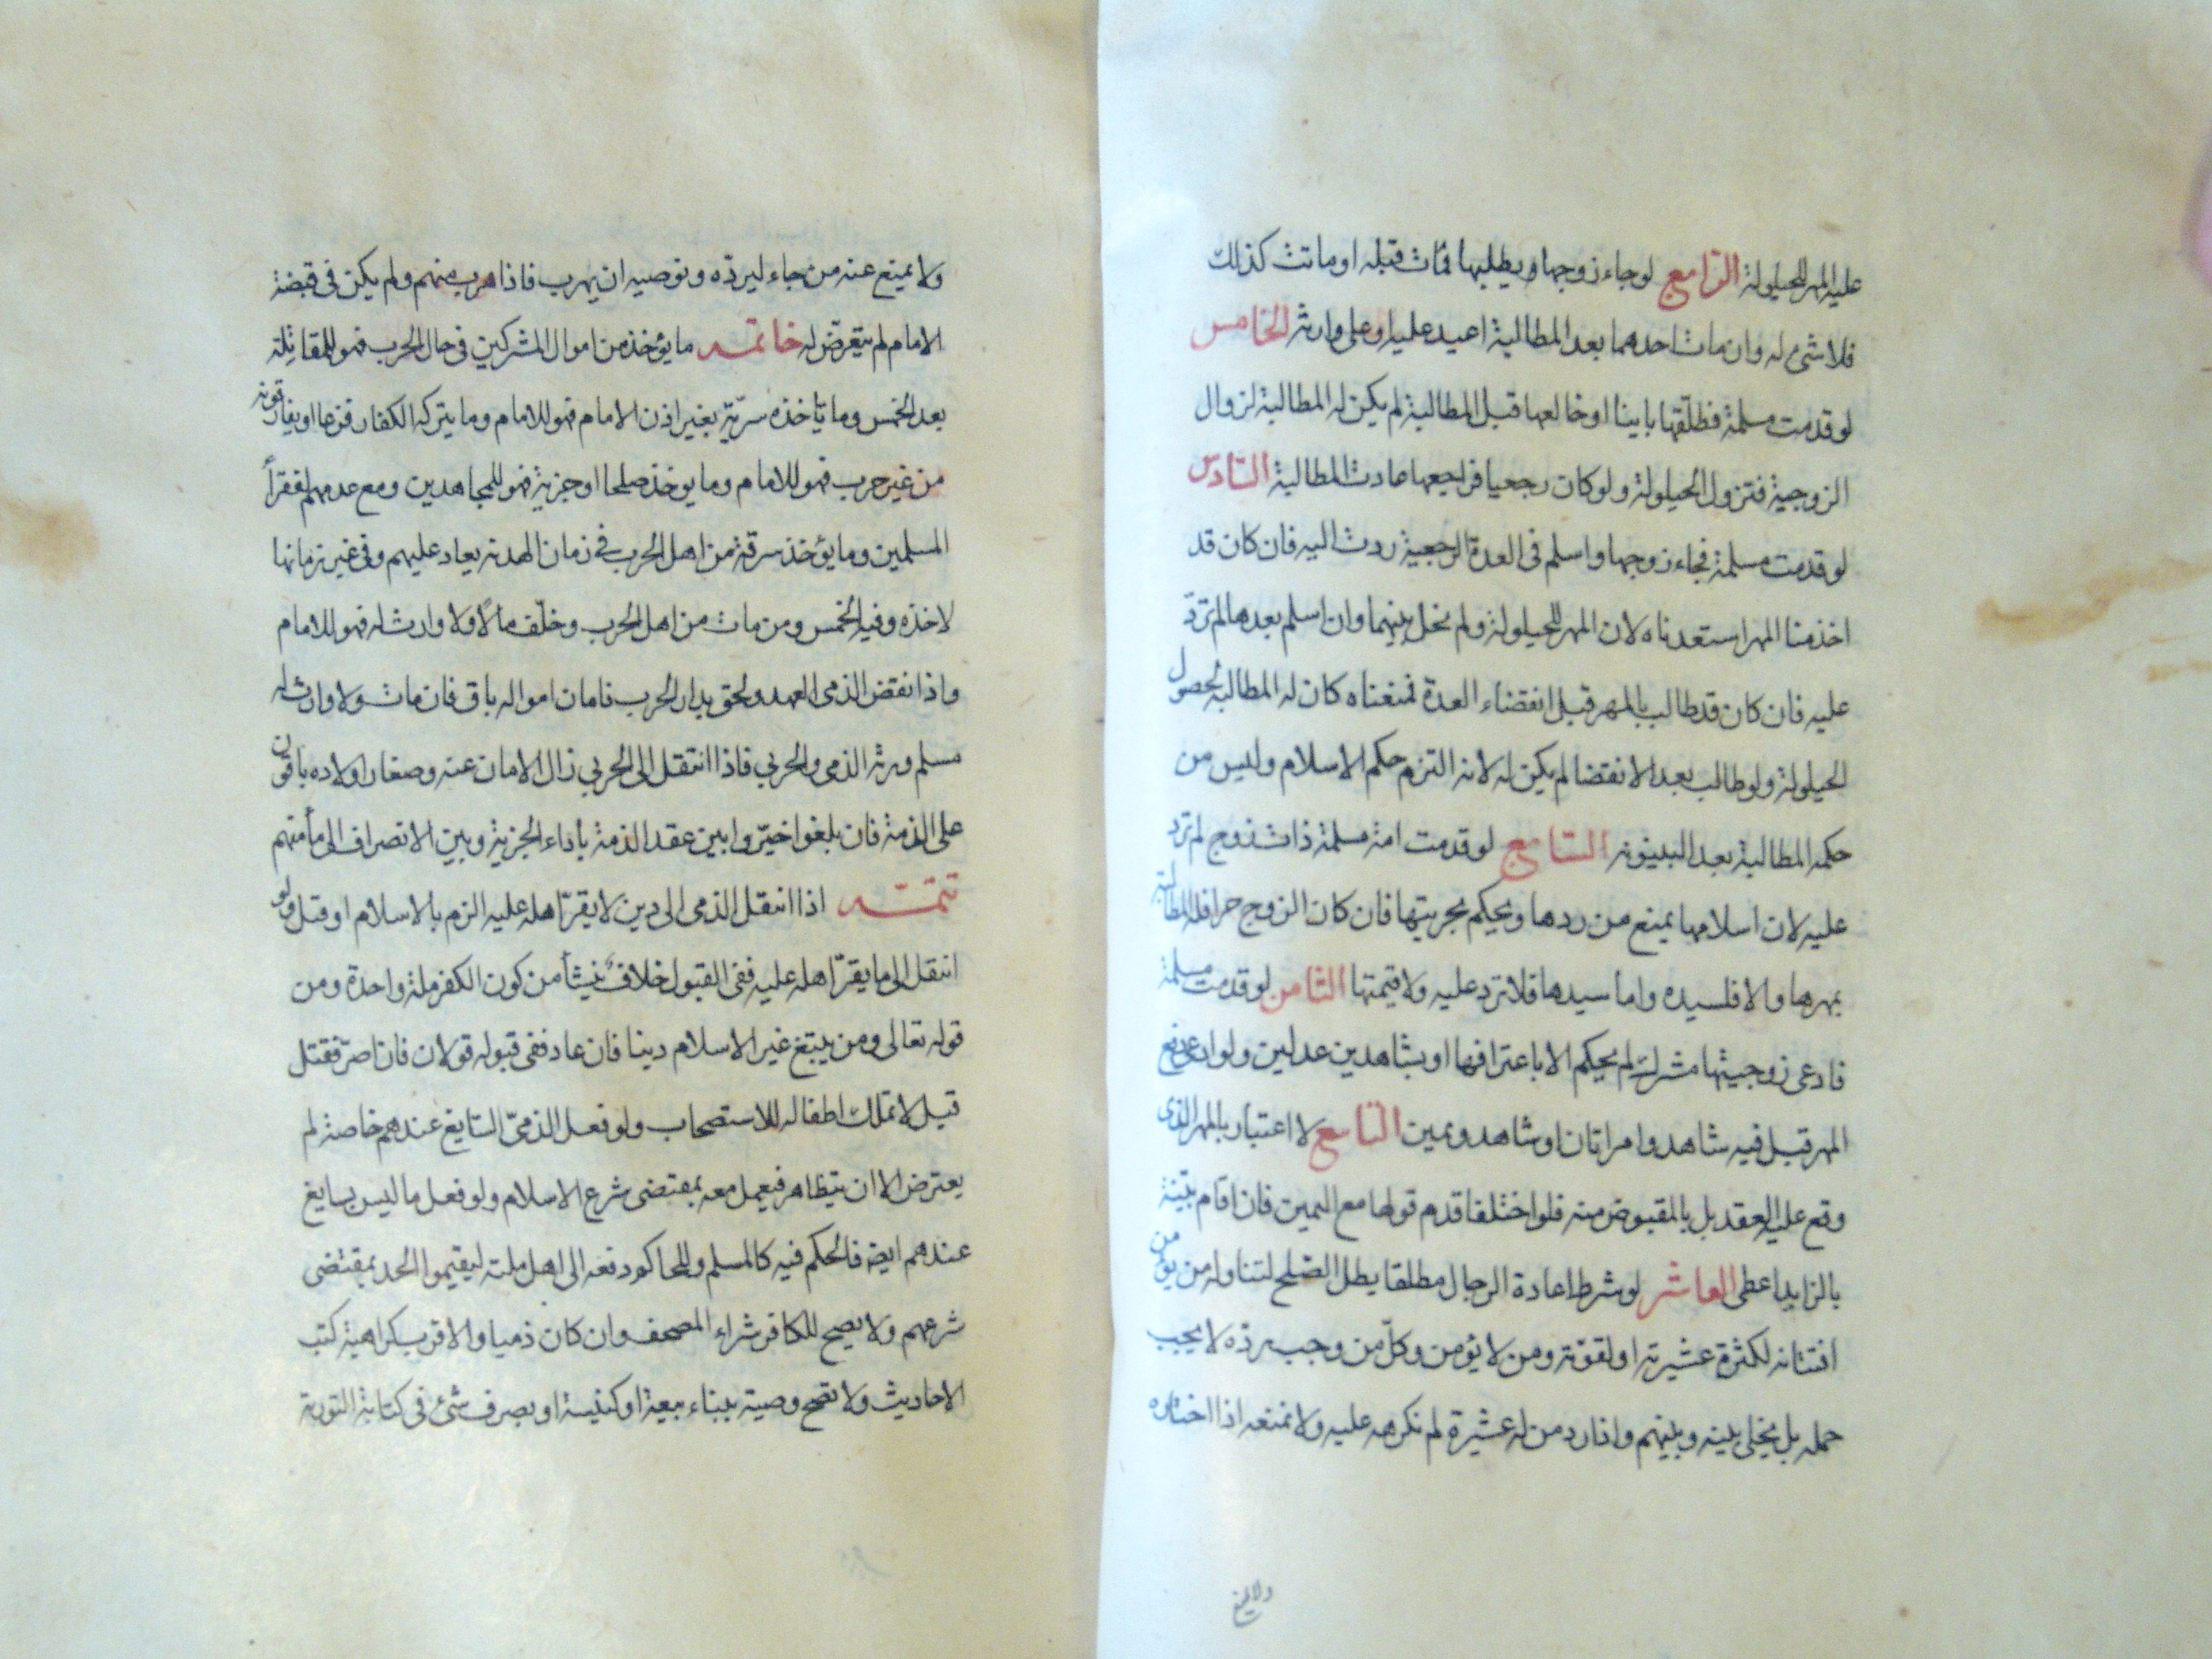 عليه المهر للحيلولة الرابع لو جاء زوجها ويطلبها فمات قبله او ماتت كذلك
فلا شئ له وان مات احدهما بعد المطالبة اعيد عليه او على وارثه الخامس
لو قدمت مسلمة فطلّقها باينا او خالعها قبل المطالبة لم يكن له المطالبة لزوال
الزوجية فتزول الحيلولة ولو كان رجعيا فراجعها عادت المطالبة السادس
لو قدمت مسلمة فجاء زوجها واسلم فى العدة الرجعية ردت اليه فان كان قد
اخذ منا المهر استعدناه لان المهر للحيلولة ولم نحل بينهما وان اسلم بعدها لم تردّ
عليه فان كان قد طالب بالمهر قبل انقضاء العدة فمنعناه كان له المطالبة لحصول
الحيلولة ولو طالب بعد الانقضا لم يكن له لانه التزم حكم الاسلام وليس من
حكمه المطالبة بعد البينونه السابع لو قدمت امة مسلمة ذات زوج لم ترد
عليه لان اسلامها يمنع من ردها ويحكم بحريتها فان كان الزوج حرا فله المطالبة
بمهرها والا فلسيده واما سيدها فلا ترد عليه ولا قيمتها الثامن لو قدمت مسلمة
فادعى زوجيتها مشرك لم يحكم الا باعترافها او بشاهدين عدلين ولو ادعى دفع
المهر قبل فيه شاهد وامراتان او شاهد ويمين التاسع لا اعتبار بالمهر الذى
وقع عليه العقد بل بالمقبوض منه فلو اختلفا قدم قولها مع اليمين فان اقام بيّنة
بالزايد اعطى العاشر لو شرط اعادة الرجال مطلقا بطل الصلح لتناوله من يؤمن
افتتانه لكثرة عشيرته او لقوّته ومن لا يؤمن وكلّ من وجب ردّه لا يجب
حمله بل يخلى بينه وبينهم واذا رد من له عشيرة لم نكرهه عليه ولا نمنعه اذا اختاره
ولا يمنع
ولا يمنع عنه من جاء ليردّه ونوصيه ان يهرب فاذا هرب منهم ولم يكن فى قبضة
الامام لم يتعرّض له خاتمه ما يؤخذ من اموال المشركين فى حال الحرب فهو للمقاتلة
بعد الخمس وما تاخذه سريّة بغير اذن الامام فهو للامام وما يتركه الكفار فزعا او يفارقونه
من غير حرب فهو للامام وما يوخذ صلحا او جزية فهو للمجاهدين ومع عدمهم لفقرأ
المسلمين وما يؤخذ سرقة من اهل الحرب فى زمان الهدنه يعاد عليهم وفى غير زمانها
لاخذه وفيه الخمس ومن مات من اهل الحرب وخلّف مالًا ولا وارث له فهو للامام
واذا نقض الذمى العهد ولحق بدار الحرب فامان امواله باق فان مات ولا وارث له
مسلم ورثه الذمى والحربي فاذا انتقل الى الحربي زال الامان عنه وصغار اولاده باقون
على الذمة فان بلغوا خيّروا بين عقد الذمة باداء الجزية وبين الانصراف الى مأمنهم
تتمّـه اذا انتقل الذمى الى دين لا يقرّ اهله عليه الزم بالاسلام او قتل ولو
انتقل الى ما يقرّ اهله عليه ففى القبول خلاف ينشأ من كون الكفر ملة واحدة ومن
قوله تعالى ومن يبتغ غير الاسلام دينا فان عاد ففى قبوله قولان فان اصرّ فقتل
قيل لا تملك اطفاله للاستصحاب ولو فعل الذمىّ السايغ عندهم خاصة لم
يعترض الا ان يتظاهر فيعمل معه بمقتضى شرع الاسلام ولو فعل ما ليس بسايغ
عندهم ايضه فالحكم فيه كالمسلم وللحاكم دفعه الى اهل ملته ليقيموا الحد بمقتضى
شرعهم ولا يصح للكافر شراء المصحف وان كان ذميا والاقرب كراهية كتب
الاحاديث ولا تصح وصية ببناء بيعة او كنيسة او بصرف شئ فى كتابة التورية